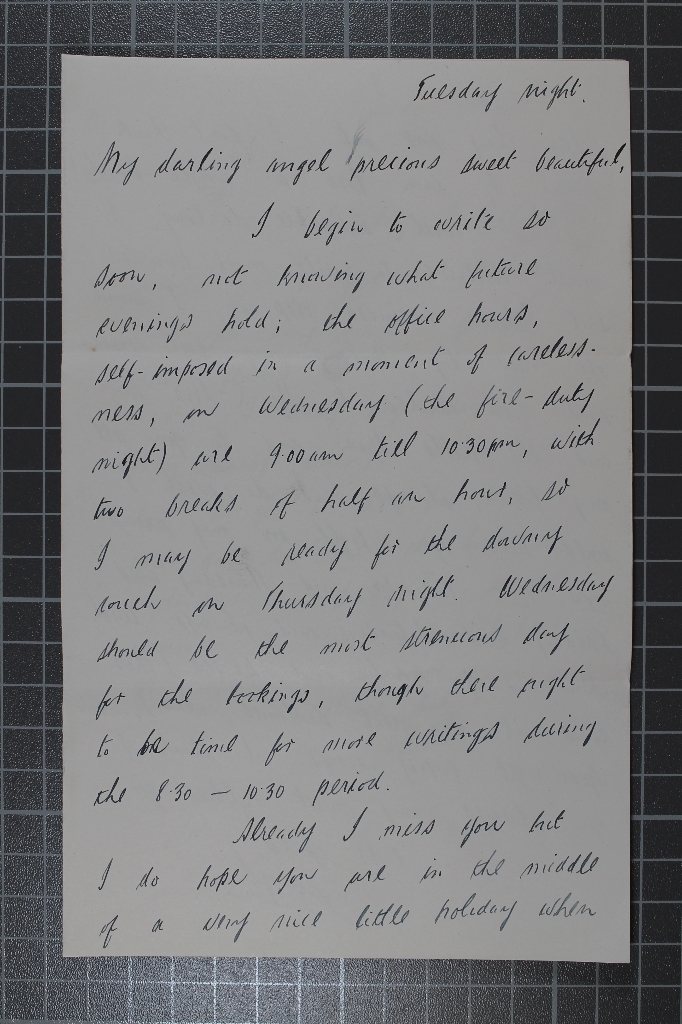 Tuesday night.
My darling angel precious sweet beautiful,
I begin to write so
soon, not knowing what future
evenings hold; the office hours,
self-imposed in a moment of careless-
ness, on Wednesday (the fire-duty
night) are 9.00am till 10.30pm, with
two breaks of half an hour, so
I may be ready for the downy
couch on Thursday night. Wednesday
should be the most strenuous day
for the bookings, though there ought
to be time for more writings during
the 8.30 — 10.30 period.
Already I miss you but
I do hope you are in the middle
of a very nice little holiday when